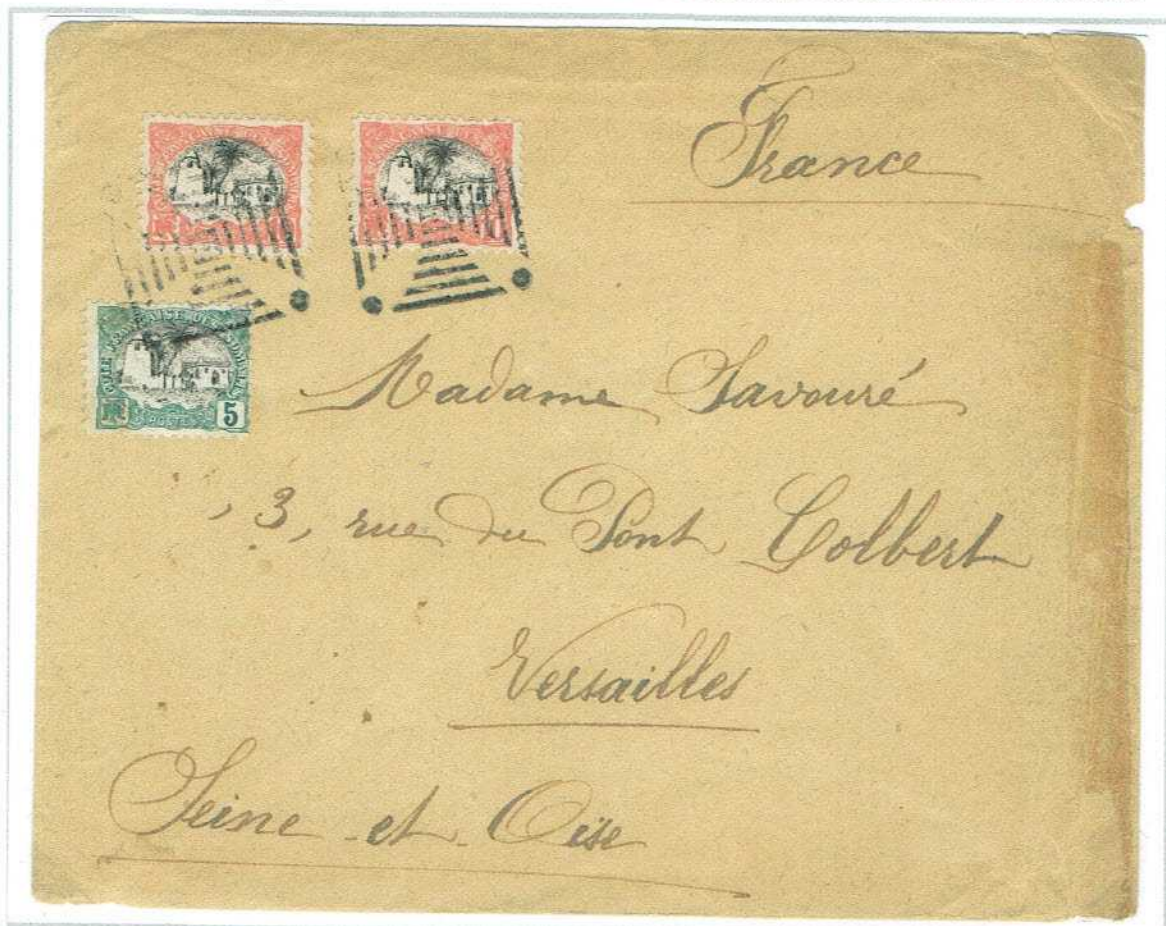 France
Madame Savouré
, 3, rue du Pont Colbert
Versailles
Seine-et-Oise
POSTES
5